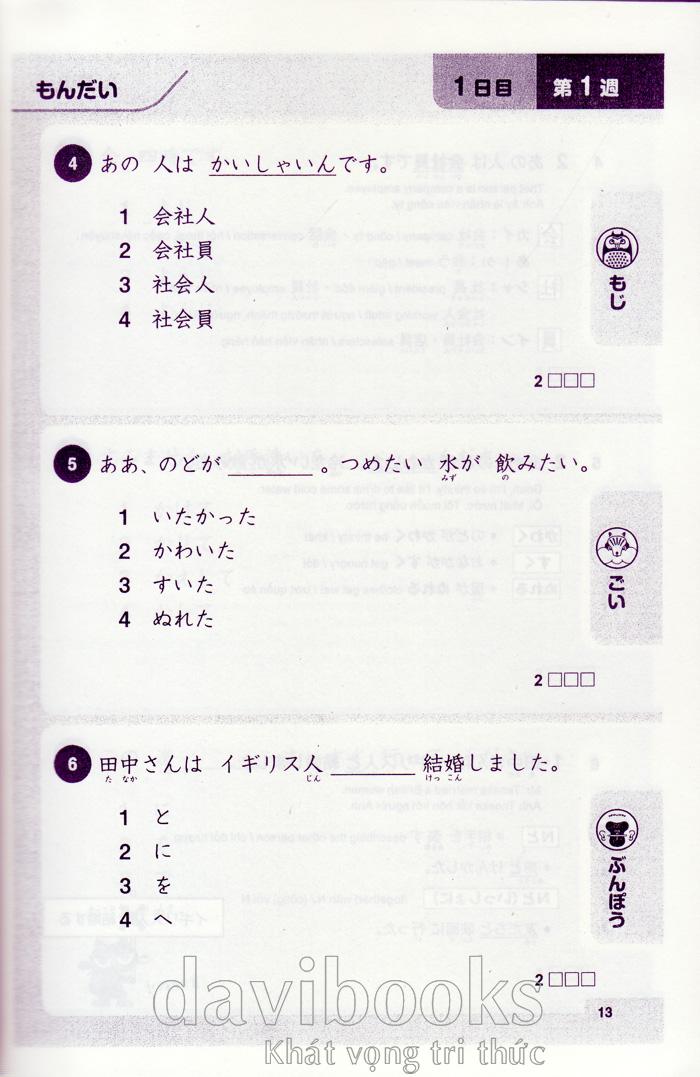 もんだい
1日目 第1週
4 あの 人は かいしゃいんです。
1 会社人
2 会社員
3 社会人
4 社会員
もじ
2 □□□
5 ああ、のどが ________ 。つめたい 水が 飲みたい。
みず の
1 いたかった
2 かわいた
3 すいた
4 ぬれた
ごい
2 □□□
6 田中さんは イギリス人 ________ 結婚しました。
た なか じん けっ こん
1 と
2 に
3 を
4 へ
ぶんぽう
2 □□□
davibooks
13
Khát vọng tri thức